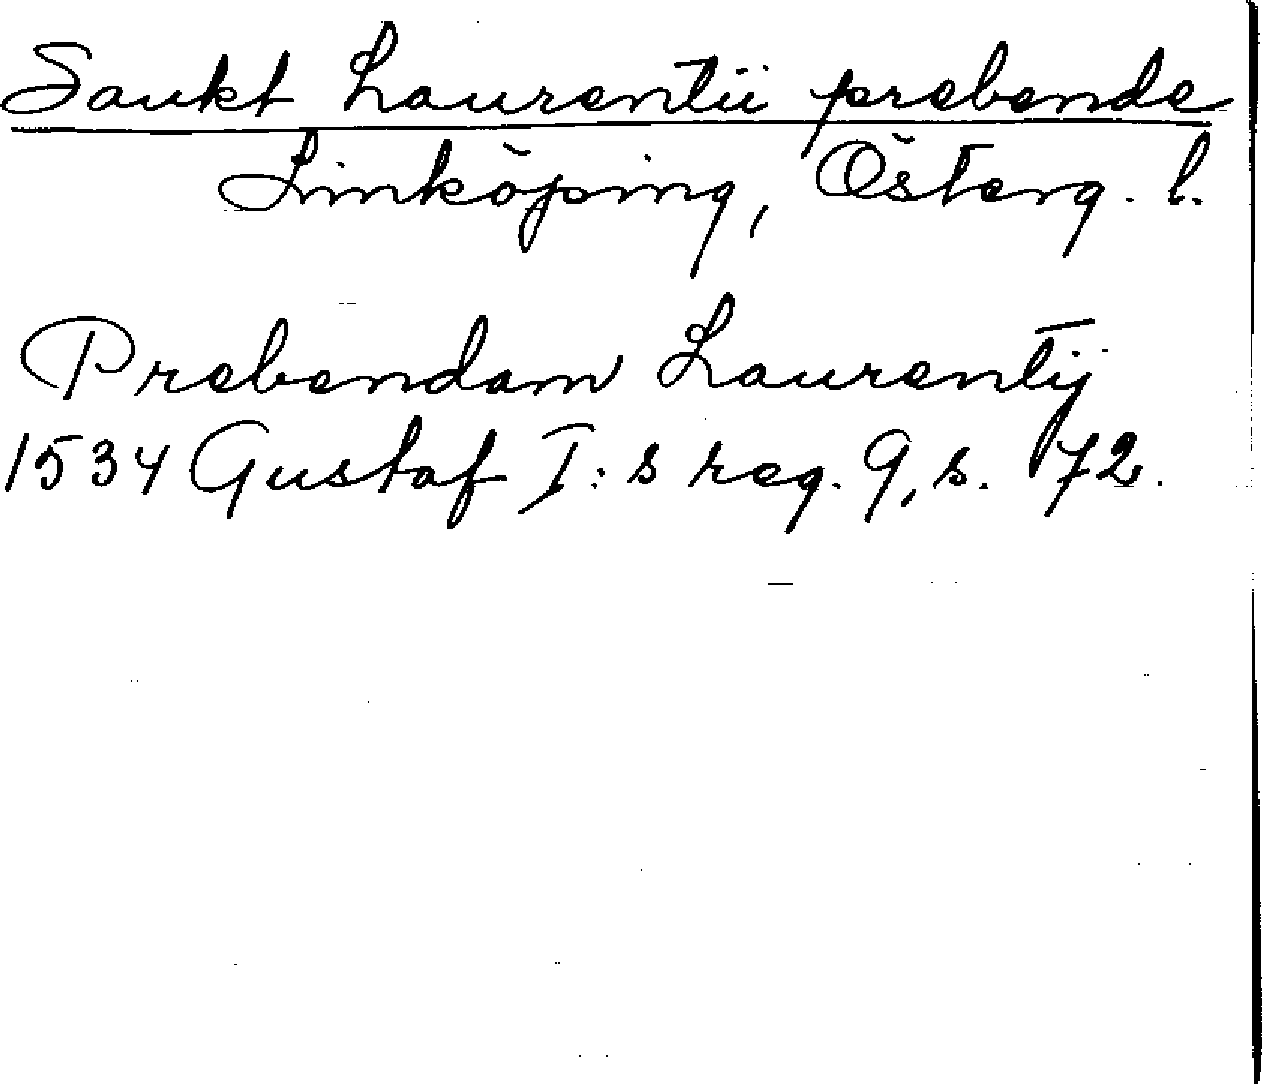 Sankt Laurentii prebende
Linköping, Österg. l.
Prebendam Laurentij
1534 Gustaf I:s reg. 9, s. 72.